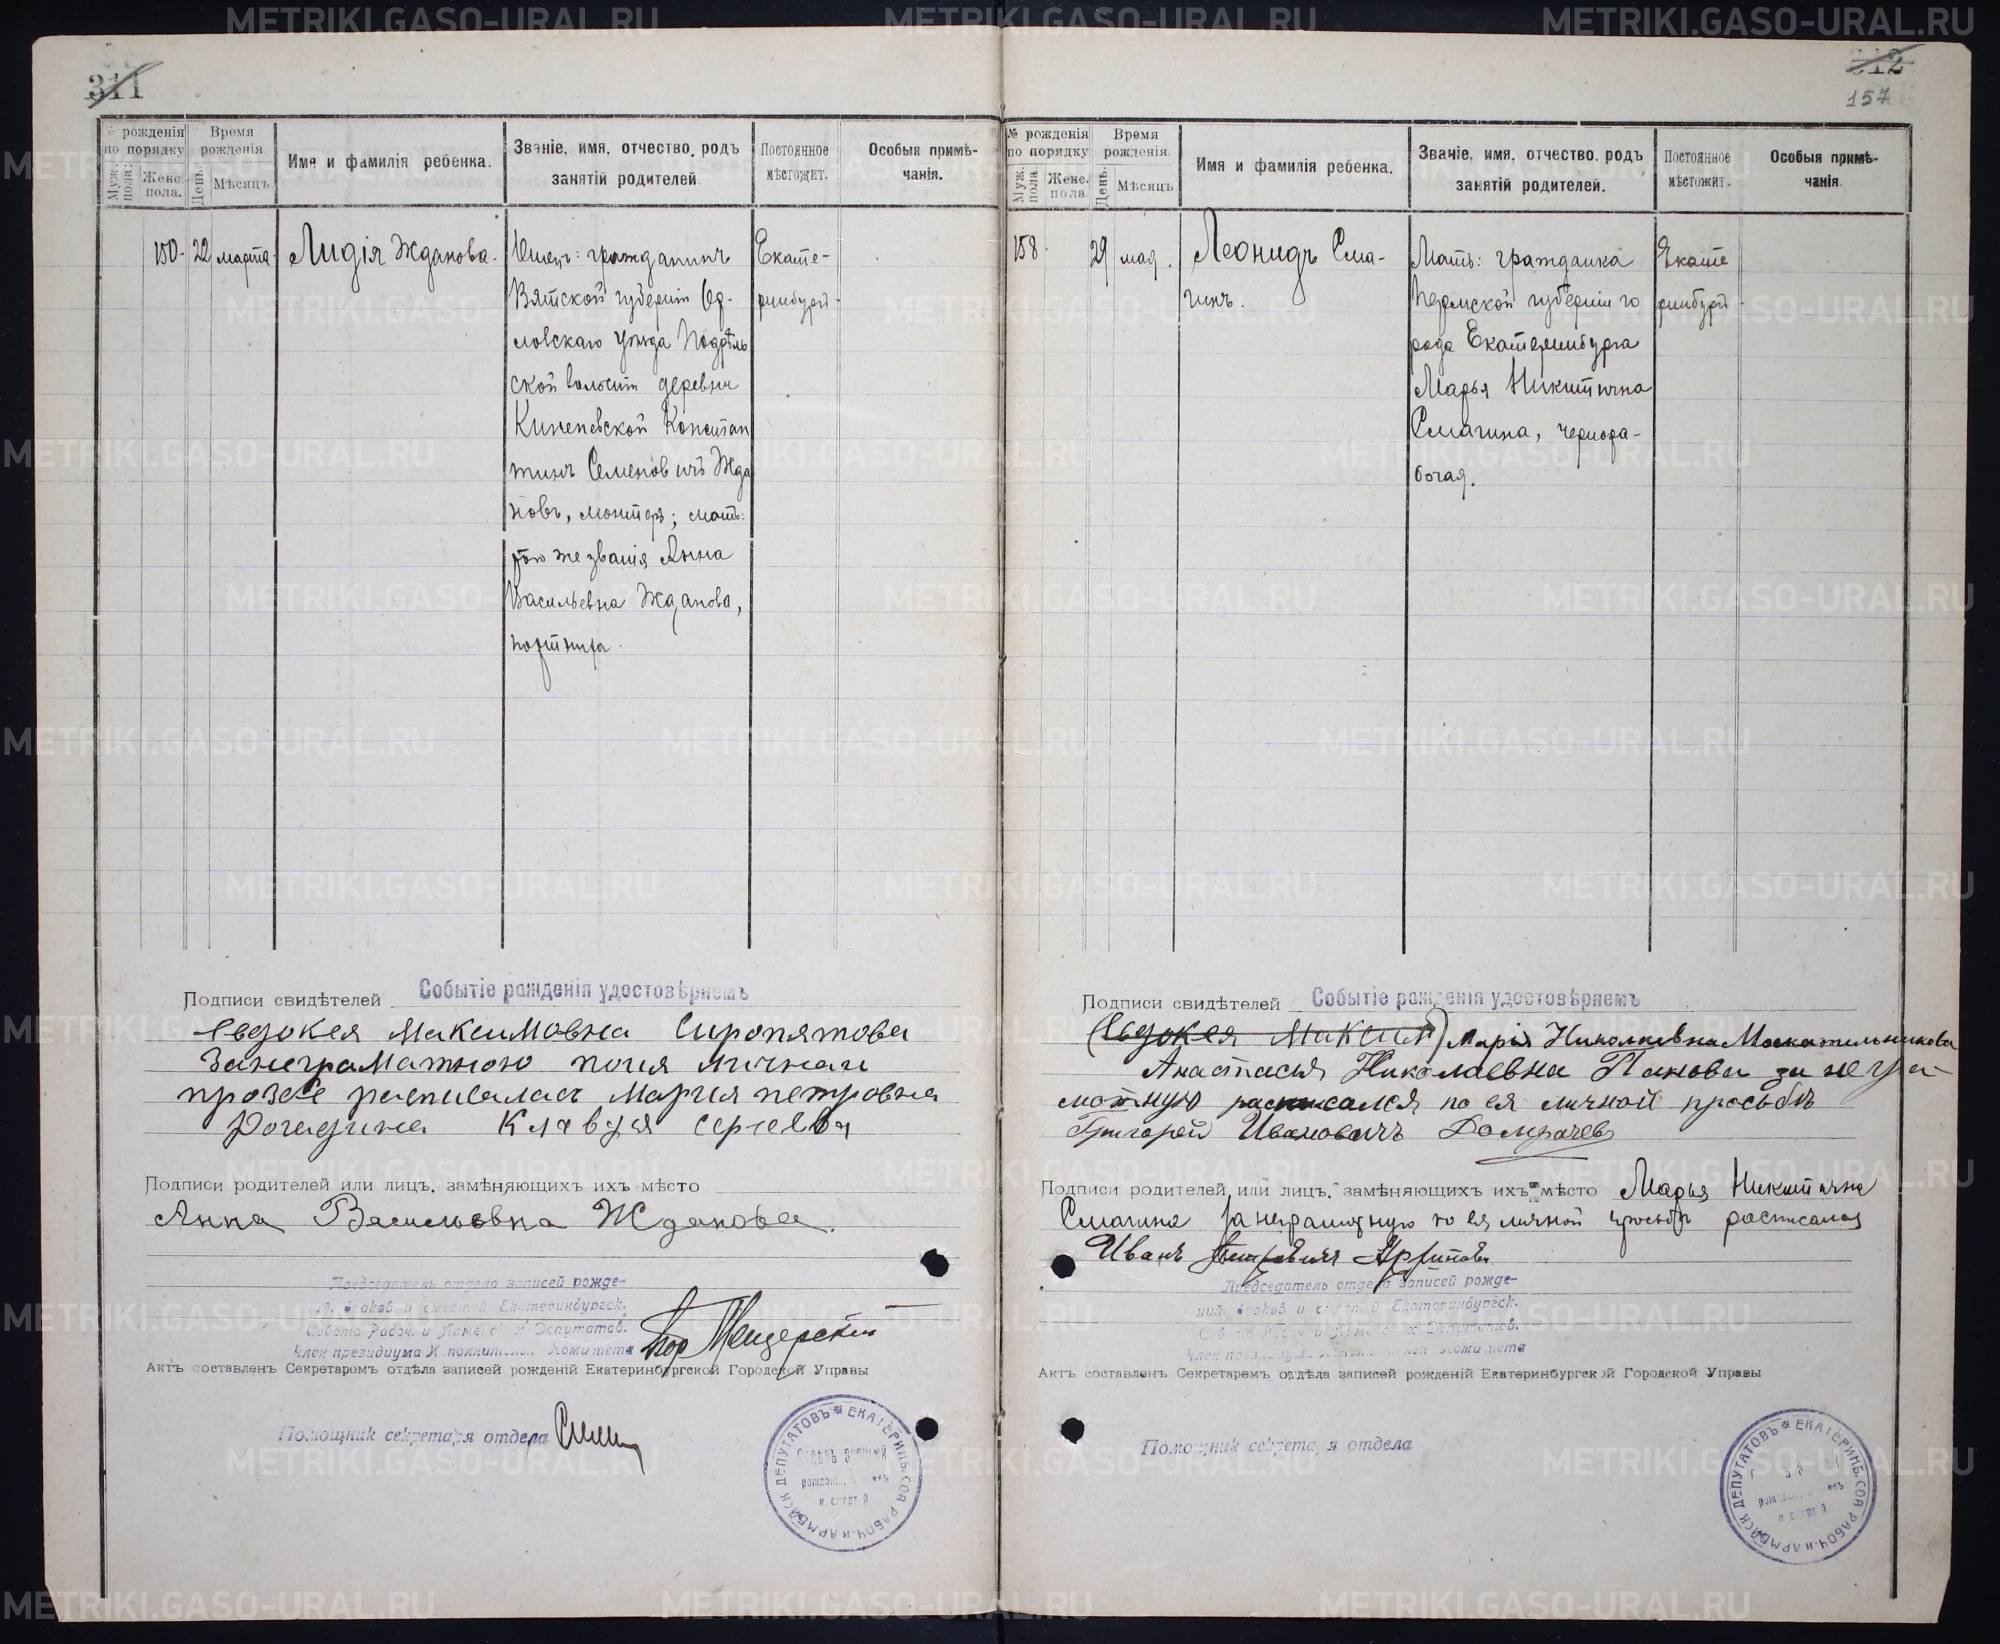 311
№ рожденія по порядку
Муж. пола.
Женс. пола.
Время рожденія
День.
Мѣсяцъ.
Имя и фамилія ребенка.
Званіе, имя, отчество, родъ занятій родителей
Постоянное мѣстожит.
Особыя примѣчанія.
150. 22 марта. Лидія Жданова.
Отецъ: гражданинъ
Вятской губерніи
ловскаго уѣзда
ской волости деревни
Констан
тинъ Семеновичъ Жда
новъ, монтеръ; мать:
того же званія Анна
Васильевна Жданова,
портниха.
Екате-
ринбург
Подписи свидѣтелей Событіе рожденія удостовѣряемъ
Евдокея Максимовна Сиропятова
Занеграматною поея личнаи
прозбе расписалас Мария петровна
Рогадина Клавдя сергеева
Подписи родителей или лицъ, замѣняющихъ ихъ мѣсто
Анна Васильевна Жданова.
Председатель отдела записей рожде-
ний, браков и смертей Екатеринбургск.
Совета Рабоч. и Армейских Депутатов.
Член президиума Исполнительн. Комитета
Актъ составленъ Секретаремъ отдѣла записей рожденій Екатеринбургской Городской Управы
Помощник секретаря отдела
ЕКАТЕРИНБ. СОВ. РАБОЧ. И АРМЕЙСК. ДЕПУТАТОВЪ
Отделъ записей
рождений, браковъ
и смертей
312
157
№ рожденія по порядку
Муж. пола.
Женс. пола
Время рожденія.
День.
Мѣсяцъ.
Имя и фамилія ребенка.
Званіе, имя, отчество, родъ занятій родителей.
Постоянное мѣстожит.
Особыя примѣчанія.
158. 29 мая. Леонидъ Сма-
гинъ.
Мать: гражданка
Пермской губерніи го
рода Екатеринбурга
Марья Никитична
Смагина, чернора-
бочая.
Екате
ринбург
Подписи свидѣтелей Событіе рожденія удостовѣряемъ
(Евдокея Максим) Марія Николаевна Москательникова
Анастасья Николаевна Панова за негра-
мотную расписался по ея личной просьбѣ
Григорій Ивановичъ Домрачевъ
Подписи родителей или лицъ, замѣняющихъ ихъ мѣсто Марья Никитична
Смагина за неграмотную по ея личной просьбѣ росписался
Иванъ Петровичъ
Председатель отдела записей рожде-
ний, браков и смертей Екатеринбургск.
Совета Рабоч. и Армейских Депутатов.
Член президиума Исполнительной Комитета
Актъ составленъ Секретаремъ отдѣла записей рожденій Екатеринбургской Городской Управы
Помощник секретаря отдела
ЕКАТЕРИНБ. СОВ. РАБОЧ. И АРМЕЙСК. ДЕПУТАТОВЪ
METRIKI.GASO-URAL.RU